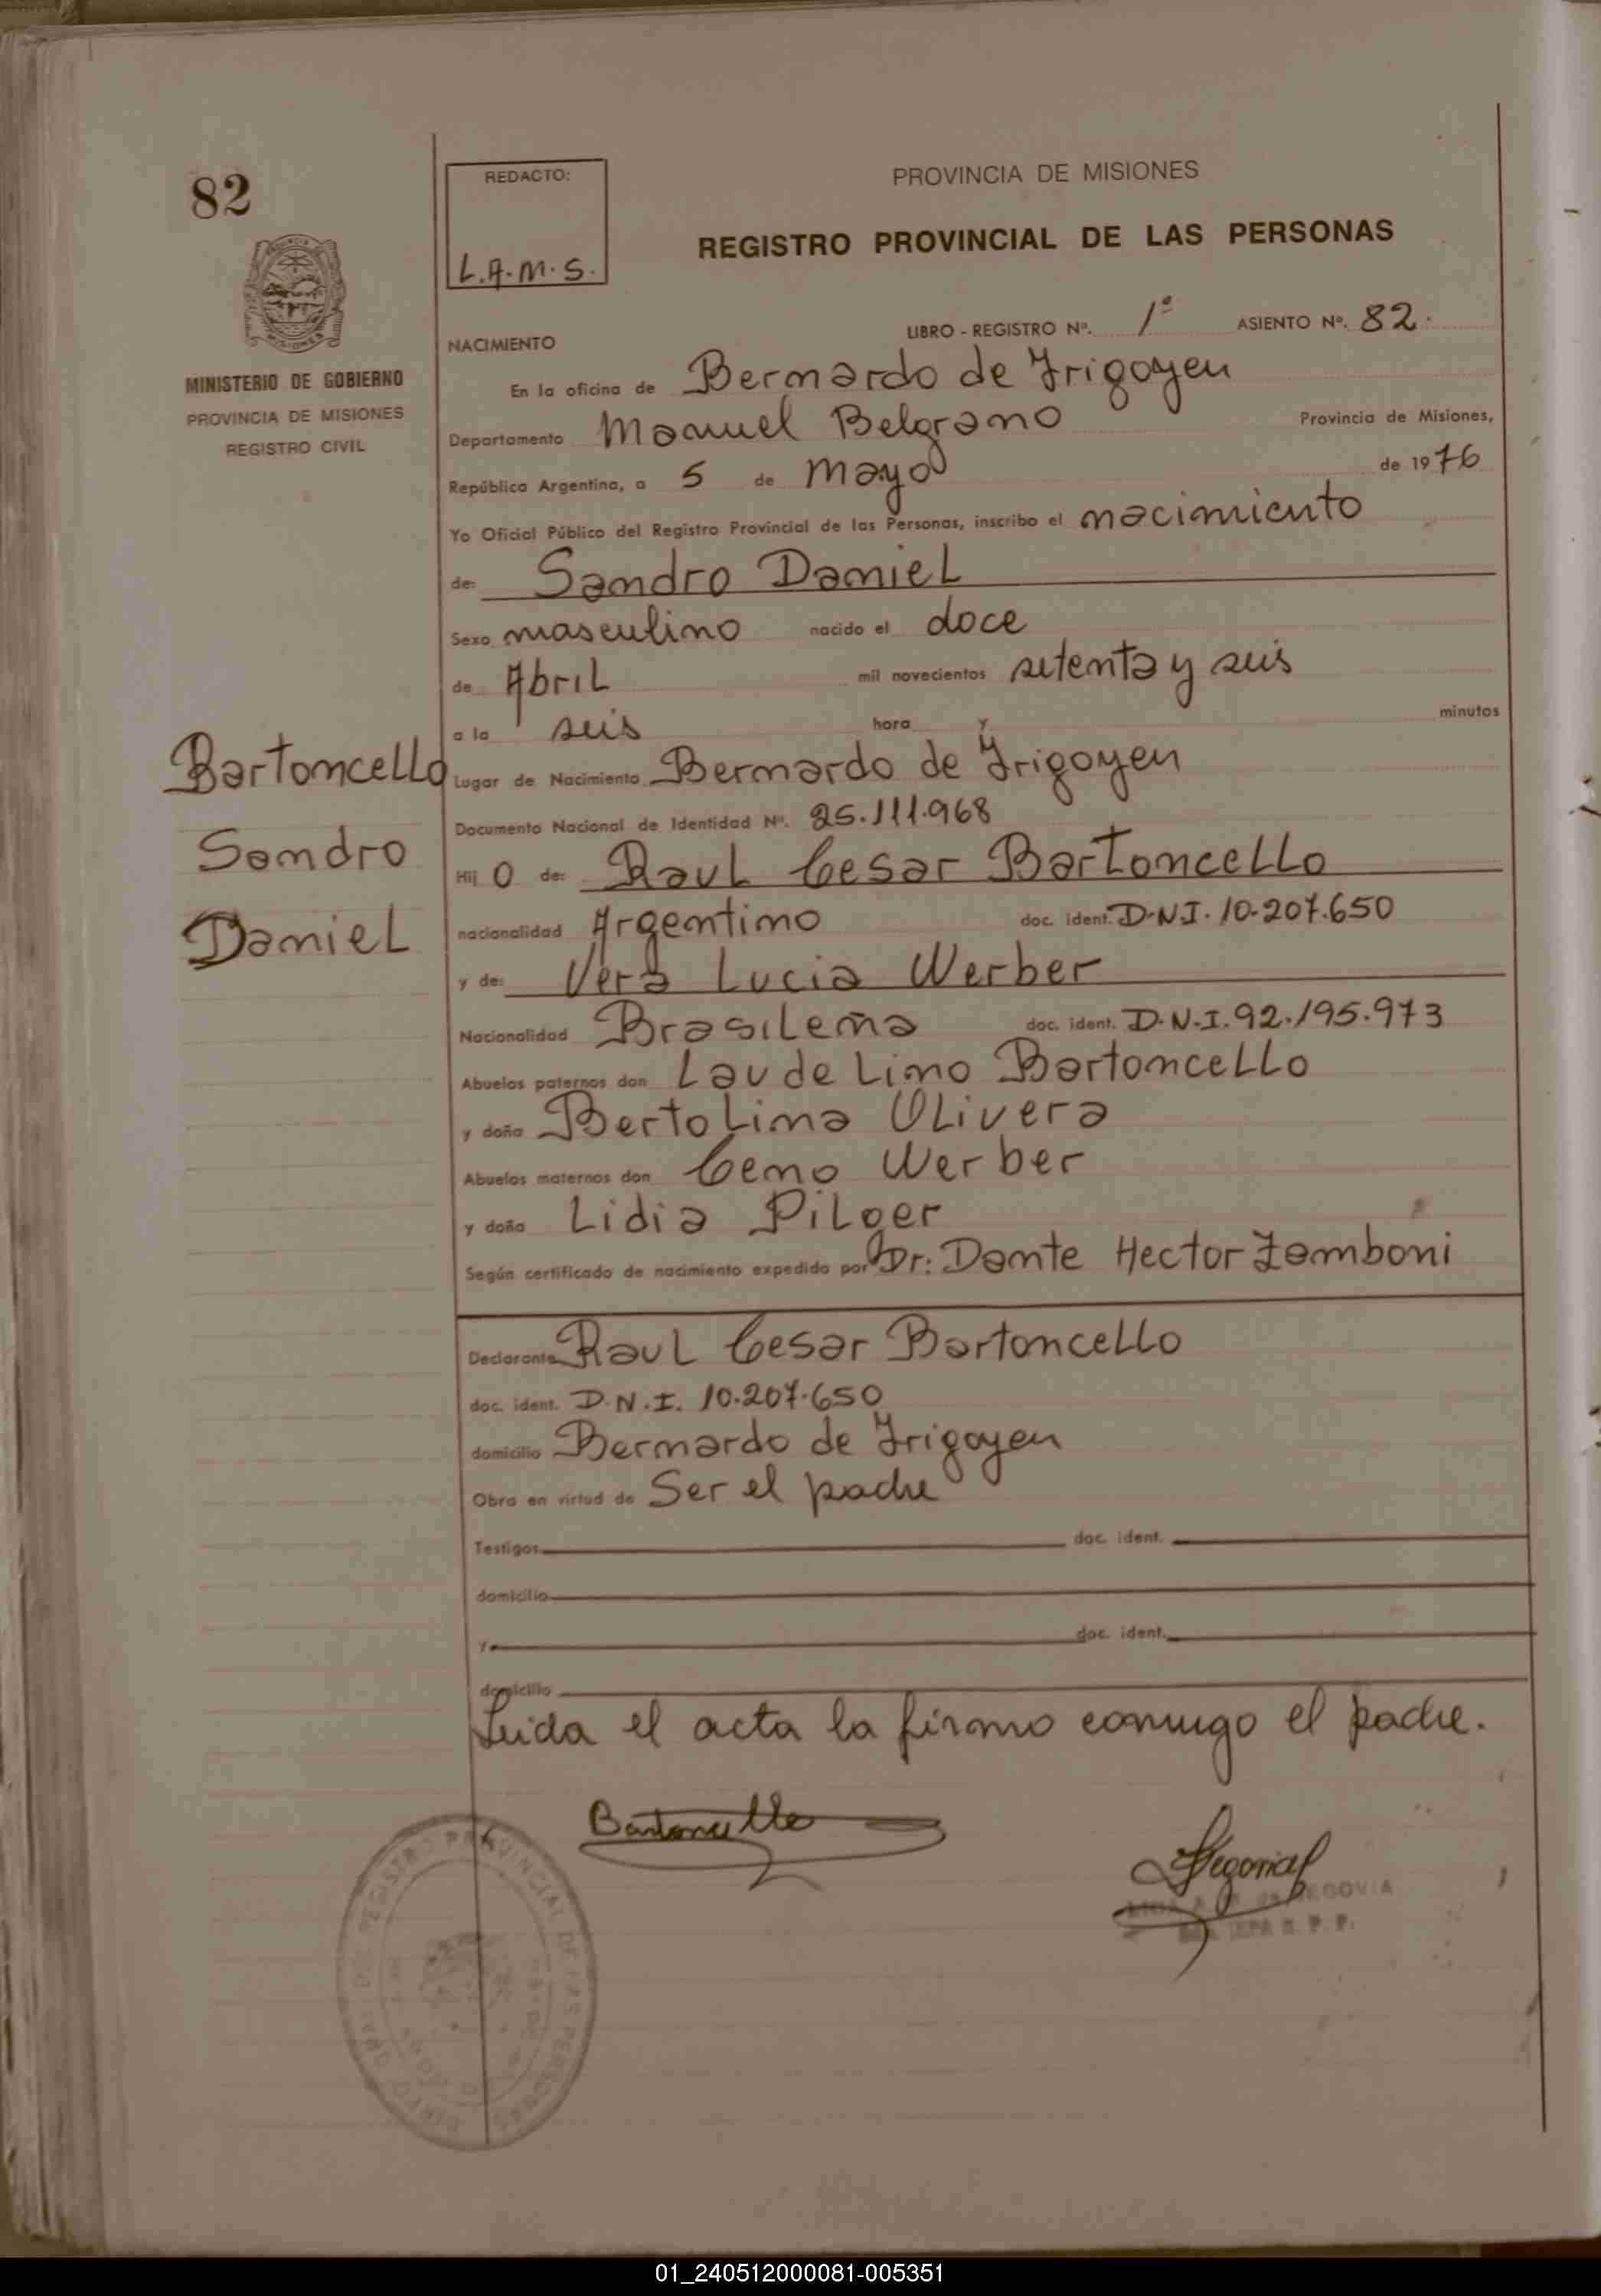 82
REDACTO:
L.A.M.S.
PROVINCIA DE MISIONES
REGISTRO PROVINCIAL DE LAS PERSONAS
MINISTERIO DE GOBIERNO
PROVINCIA DE MISIONES
REGISTRO CIVIL
NACIMIENTO
LIBRO - REGISTRO Nº. 1º ASIENTO Nº. 82.
En la oficina de Bernardo de Irigoyen
Departamento Manuel Belgrano Provincia de Misiones,
República Argentina, a 5 de Mayo de 1976
Yo Oficial Público del Registro Provincial de las Personas, inscribo el nacimiento
de: Sandro Daniel
Sexo masculino nacido el doce
de Abril mil novecientos setenta y seis
a la seis hora y minutos
Bartoncello
Sandro
Daniel
Lugar de Nacimiento Bernardo de Irigoyen
Documento Nacional de Identidad Nº. 25.111.968
Hij o de: Raul Cesar Bartoncello
nacionalidad Argentino doc. ident. D.N.I. 10.207.650
y de: Vera Lucia Werber
Nacionalidad Brasileña doc. ident. D.N.I. 92.195.973
Abuelos paternos don Laudelino Bartoncello
y doña Bertolina Olivera
Abuelos maternos don Ceno Werber
y doña Lidia Pilger
Según certificado de nacimiento expedido por Dr: Dante Hector Zamboni
Declarante Raul Cesar Bartoncello
doc. ident. D.N.I. 10.207.650
domicilio Bernardo de Irigoyen
Obra en virtud de Ser el padre
Testigos doc. ident.
domicilio
y doc. ident.
domicilio
Leida el acta la firmo conmigo el padre.
Bartoncello
Segovia
SEGOVIA
REGISTRO PROVINCIAL DE LAS PERSONAS
01_240512000081-005351